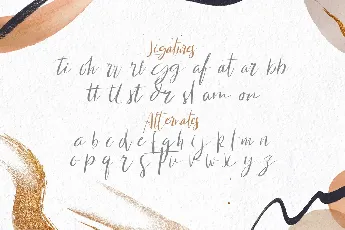 Ligatures
ti oh rr re gg af at ar bb
tt ll st or sl am on
Alternates
a b c d e f g h i j k l m n
o p q r s t u v w x y z